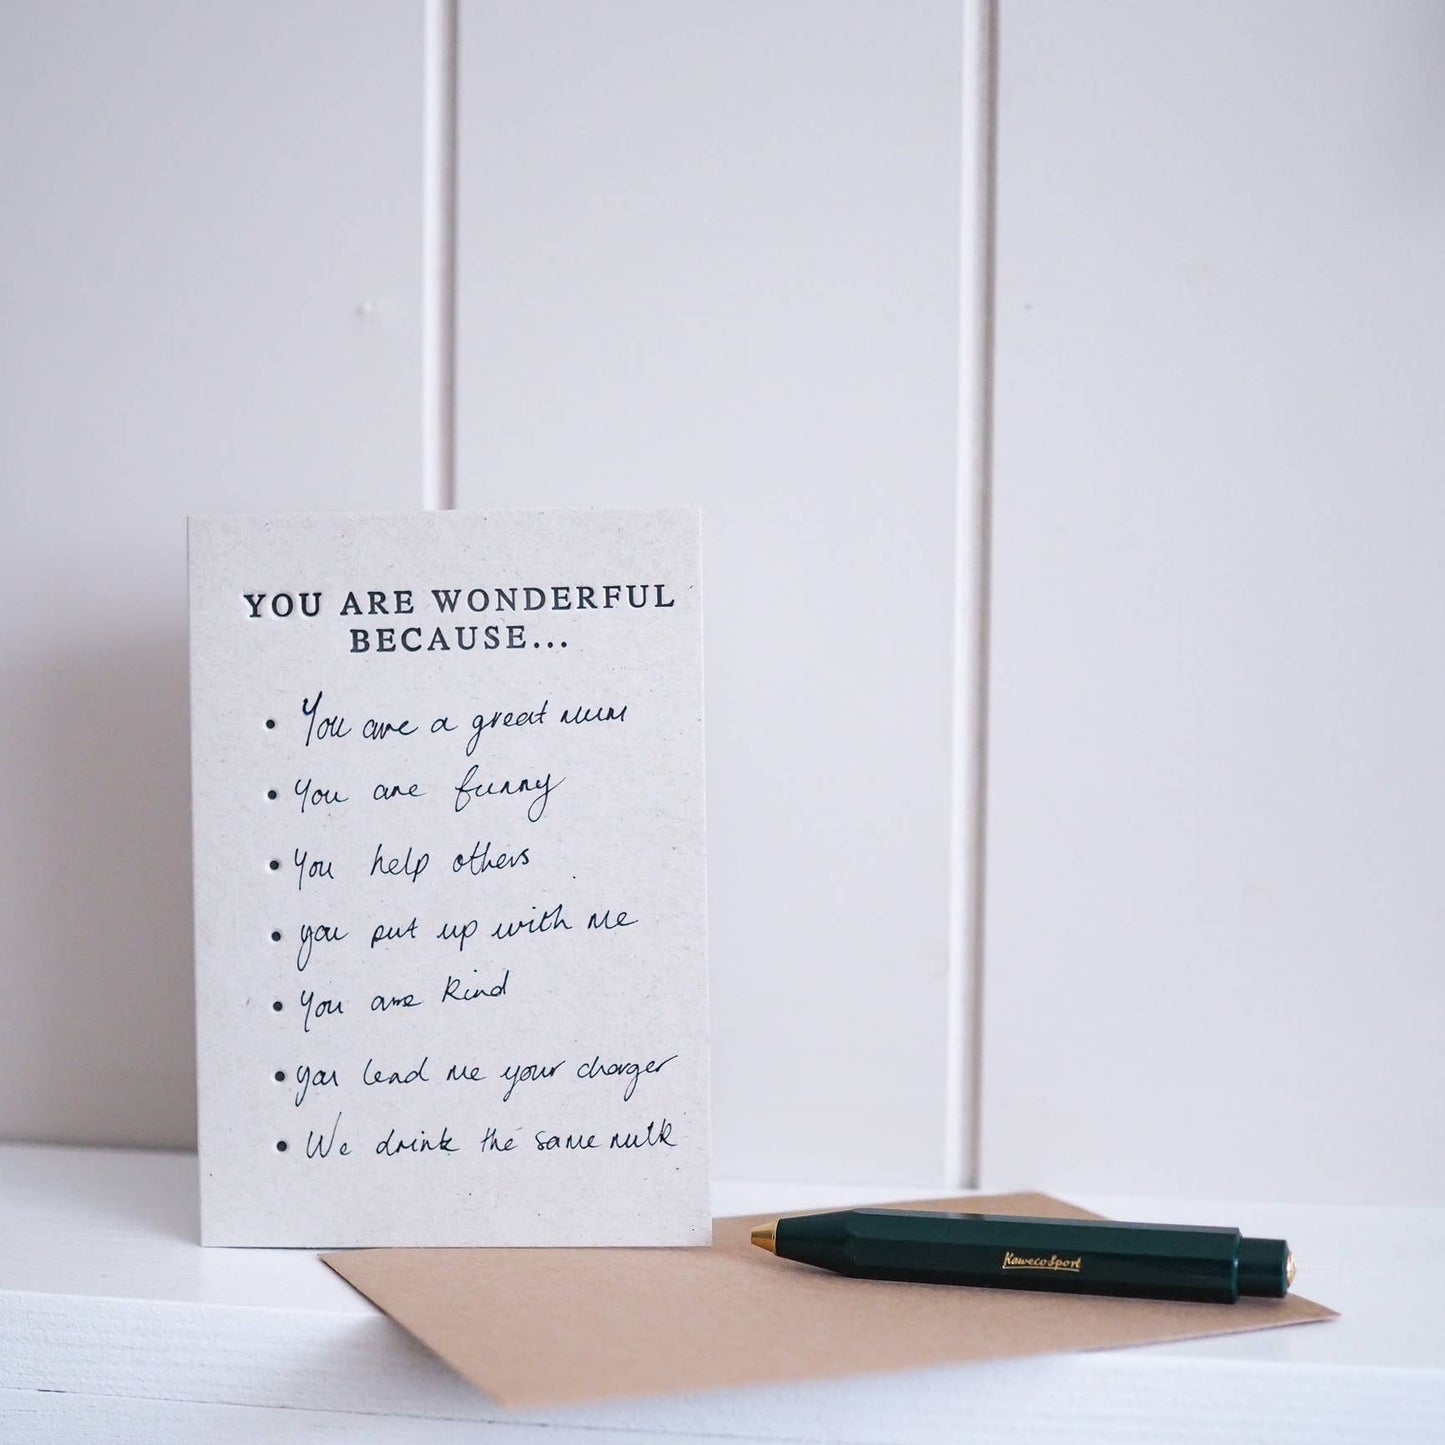 YOU ARE WONDERFUL
BECAUSE...
• You are a great mum
• You are funny
• You help others
• you put up with me
• You are kind
• you lend me your charger
• We drink the same milk
Kaweco Sport